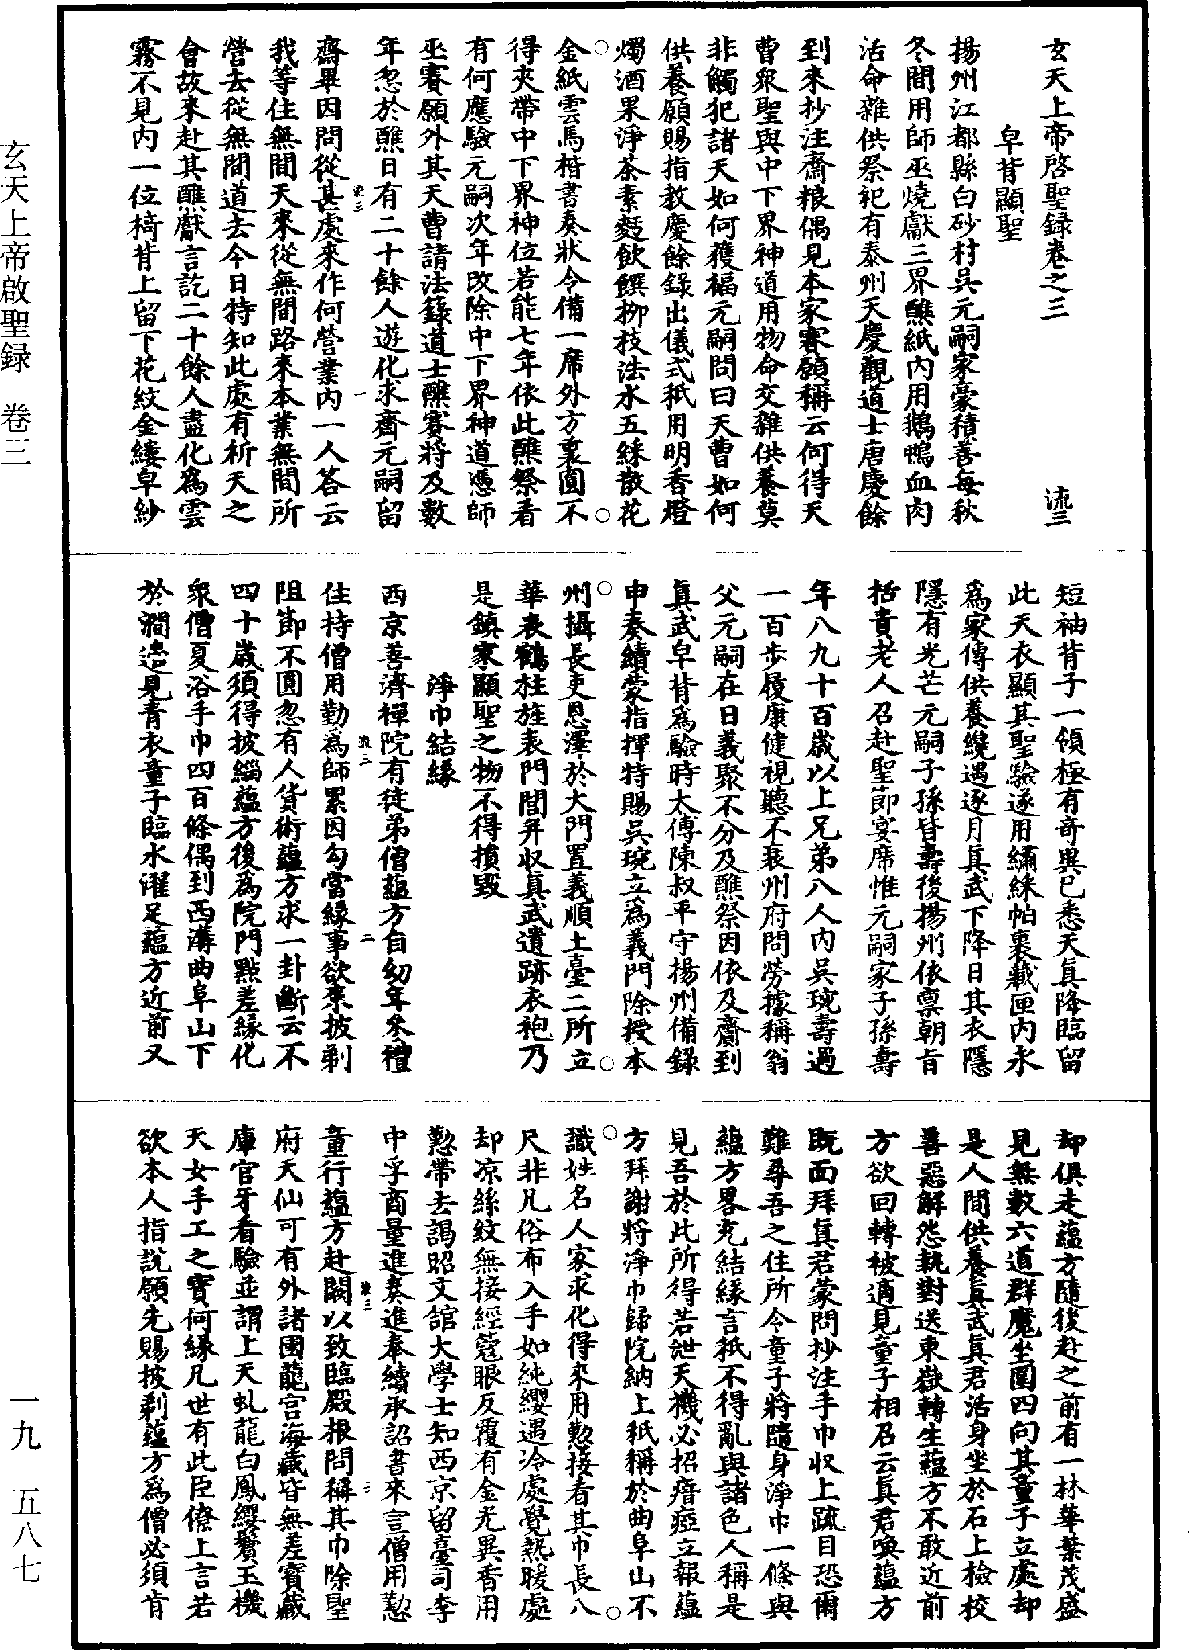 玄天上帝啓聖録卷之三　流三
皁背顯聖
揚州江都縣白砂村吳元嗣家豪積善每秋
冬間用師巫燒獻三界醮紙內用鵝鴨血肉
活命雜供祭祀有泰州天慶觀道士唐慶餘
到來抄注齋粮偶見本家賽願稱云何得天
曹衆聖與中下界神道用物命交雜供養莫
非觸犯諸天如何獲福元嗣問曰天曹如何
供養願賜指教慶餘錄出儀式秖用明香燈
燭酒果淨茶素麪飲饌栁枝法水五綵散花
金紙雲馬楷書奏狀令備一席外方裏圓不
得夾帶中下界神位若能七年依此醮祭看
有何應驗元嗣次年改除中下界神道憑師
巫賽願外其天曹請法籙道士醮賽將及數
年忽於醮日有二十餘人遊化求齋元嗣留
齋畢因問從甚處來作何營業內一人荅云
我等住無間天來從無間路來本業無間所
營去從無間道去今日特知此處有祈天之
會故來赴其醮獻言訖二十餘人盡化爲雲
霧不見內一位椅背上留下花紋金縷皁紗
短袖背子一領極有奇異已悉天眞降臨留
此天衣顯其聖驗遂用繡綵帕裹載匣內永
爲家傳供養纔遇逐月眞武下降日其衣隱
隱有光芒元嗣子孫皆壽後揚州依禀朝旨
括責老人召赴聖節宴席惟元嗣家子孫壽
年八九十百歲以上兄弟八人內吳琬壽過
一百步履康健視聽不衰州府問勞據稱翁
父元嗣在日義聚不分及醮祭因依及齎到
眞武皁背爲驗時太傅陳叔平守揚州備録
申奏續蒙指揮特賜吳琬立爲義門除授本
州攝長吏恩澤於大門置義順土臺二所立
華表鶴柱旌表門閭幷収眞武遺跡衣袍乃
是鎮家顯聖之物不得損毀
淨巾結緣
西京善濟禪院有徒弟僧藴方自幼年叅禮
住持僧用勤爲師累因勾當緣事欲來披剃
阻節不圓忽有人貨術藴方求一卦斷云不
四十歲須得披緇藴方後爲院門點差緣化
衆僧夏浴手巾四百條偶到西溝曲阜山下
於澗邊見青衣童子臨水濯足藴方近前又
却俱走藴方隨後赴之前有一林華葉茂盛
見無數六道群魔坐圍四向其童子立處却
是人間供養眞武眞君活身坐於石上檢校
善惡解怨執對送東嶽轉生藴方不敢近前
方欲回轉被適見童子相召云眞君喚藴方
既面拜眞君蒙問抄注手巾収上䟽目恐爾
難尋吾之住所令童子將隨身淨巾一條與
藴方畧充結緣言秖不得亂與諸色人稱是
見吾於此所得若泄天機必招瘖瘂立報藴
方拜謝將淨巾歸院納上秖稱於曲阜山不
識姓名人家求化得來用懃接看其巾長八
尺非凡俗布入手如純纓遇冷處覺熱暖處
却凉絲紋無接經蔻眼反覆有金光異香用
懃帶去謁昭文館大學士知西京留臺司李
中孚商量進奏進奉續承詔書來宣僧用懃
童行藴方赴闕以致臨殿根問稱其巾除聖
府天仙可有外諸國龍宮海藏皆無差寶藏
庫官牙看驗並謂上天虬龍白鳳纓鬢玉機
天女手工之寶何緣凡世有此臣僚上言若
欲本人指說願先賜披剃藴方爲僧必須肯
玄天上帝啟聖録　卷三
一九　五八七